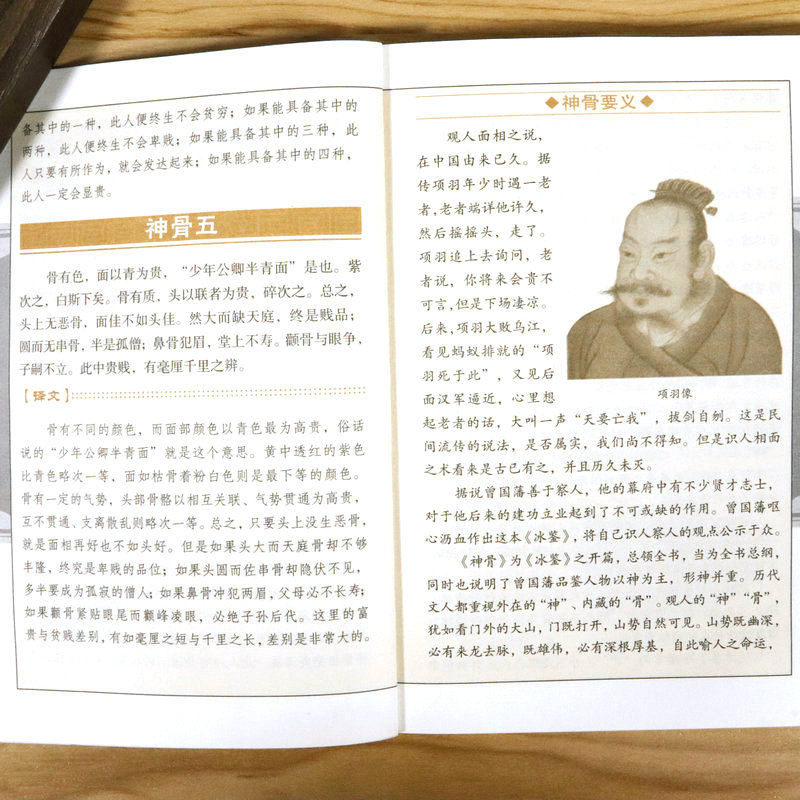 备其中的一种，此人便终生不会贫穷；如果能具备其中的
两种，此人便终生不会卑贱；如果能具备其中的三种，此
人只要有所作为，就会发达起来；如果能具备其中的四种，
此人一定会显贵。
神骨五
骨有色，面以青为贵，“少年公卿半青面”是也。紫
次之，白斯下矣。骨有质，头以联者为贵，碎次之。总之，
头上无恶骨，面佳不如头佳。然大而缺天庭，终是贱品；
圆而无串骨，半是孤僧；鼻骨犯眉，堂上不寿。颧骨与眼争，
子嗣不立。此中贵贱，有毫厘千里之辨。
【译文】
骨有不同的颜色，而面部颜色以青色最为高贵，俗话
说的“少年公卿半青面”就是这个意思。黄中透红的紫色
比青色略次一等，面如枯骨着粉白色则是最下等的颜色。
骨有一定的气势，头部骨骼以相互关联、气势贯通为高贵，
互不贯通、支离散乱则略次一等。总之，只要头上没生恶骨，
就是面相再好也不如头好。但是如果头大而天庭骨却不够
丰隆，终究是卑贱的品位；如果头圆而佐串骨却隐伏不见，
多半要成为孤寂的僧人；如果鼻骨冲犯两眉，父母必不长寿；
如果颧骨紧贴眼尾而颧峰凌眼，必绝子孙后代。这里的富
贵与贫贱差别，有如毫厘之短与千里之长，差别是非常大的。
◆神骨要义◆
观人面相之说，
在中国由来已久。据
传项羽年少时遇一老
者，老者端详他许久，
然后摇摇头，走了。
项羽追上去询问，老
者说，你将来会贵不
可言，但是下场凄凉。
后来，项羽大败乌江，
看见蚂蚁排就的“项
羽死于此”，又见后
面汉军逼近，心里想
起老者的话，大叫一声“天要亡我”，拔剑自刎。这是民
间流传的说法，是否属实，我们尚不得知。但是识人相面
之术看来是古已有之，并且历久未灭。
项羽像
据说曾国藩善于察人，他的幕府中有不少贤才志士，
对于他后来的建功立业起到了不可或缺的作用。曾国藩呕
心沥血作出这本《冰鉴》，将自己识人察人的观点公示于众。
《神骨》为《冰鉴》之开篇，总领全书，当为全书总纲，
同时也说明了曾国藩品鉴人物以神为主，形神并重。历代
文人都重视外在的“神”、内藏的“骨”。观人的“神”“骨”，
犹如看门外的大山，门既打开，山势自然可见。山势既幽深，
必有来龙去脉，既雄伟，必有深根厚基，自此喻人之命运，